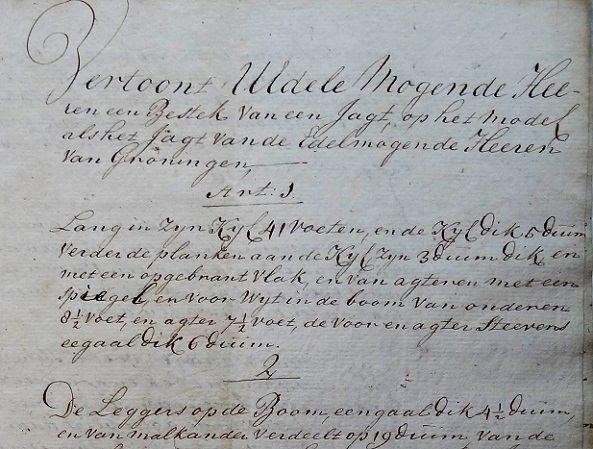 Vertoont UEdele Mogende Hee-
ren een Bestek van een Jagt, op het model
als het Jagt van de Edelmogende Heeren
van Groningen,
Art: 1.
Lang in zyn Kyl 41 voeten, en de Kyl dik 5 duim
verder de planken aan de Kyl zyn 3 duim dik, en
met een opgebrant vlak, en van agteren met een
spiegel, en voor wyt in de boom van onderen
8½ voet, en agter 7½ voet, de voor en agter Steevens
eegaal dik 6 duim.
2
De Leggers op de Boom, eengaal dik 4½ duim,
en van malkander verdeelt op 19 duim van de